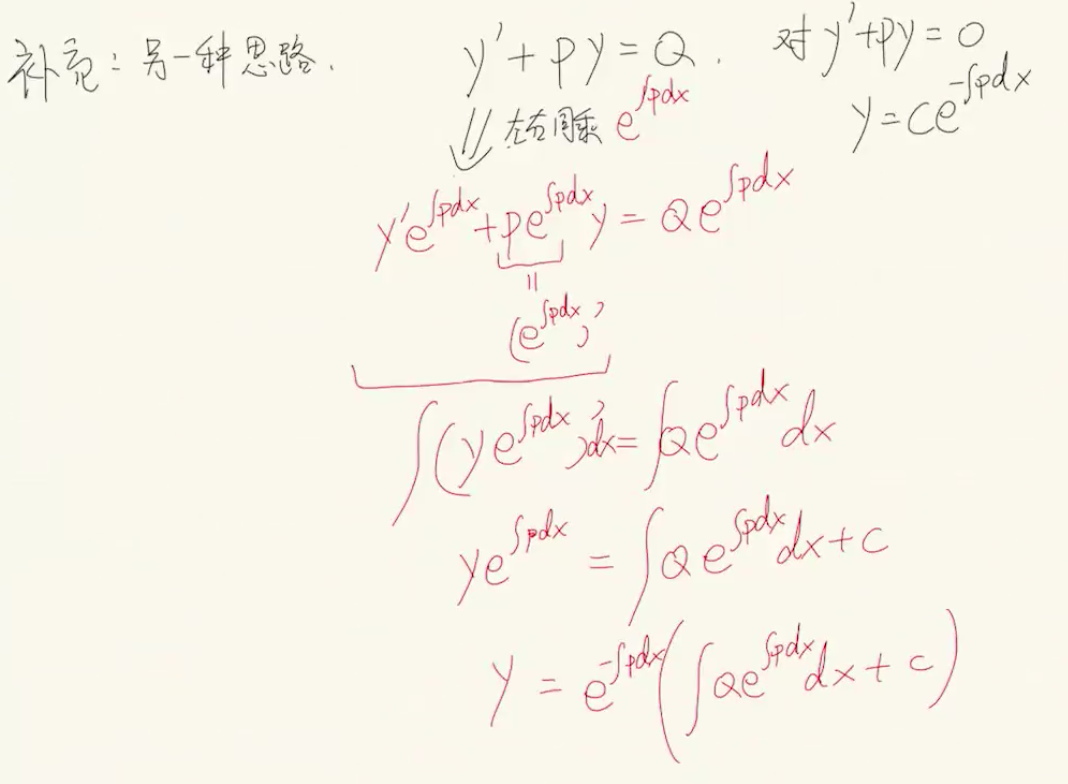 补充：另一种思路. y'+py=Q. 对y'+py=0
左右同乘 e^{∫pdx} y=ce^{-∫pdx}
y'e^{∫pdx}+pe^{∫pdx}y=Qe^{∫pdx}
=
(e^{∫pdx})'
∫(ye^{∫pdx})'dx=∫Qe^{∫pdx}dx
ye^{∫pdx}=∫Qe^{∫pdx}dx+c
y=e^{-∫pdx}(∫Qe^{∫pdx}dx+c)